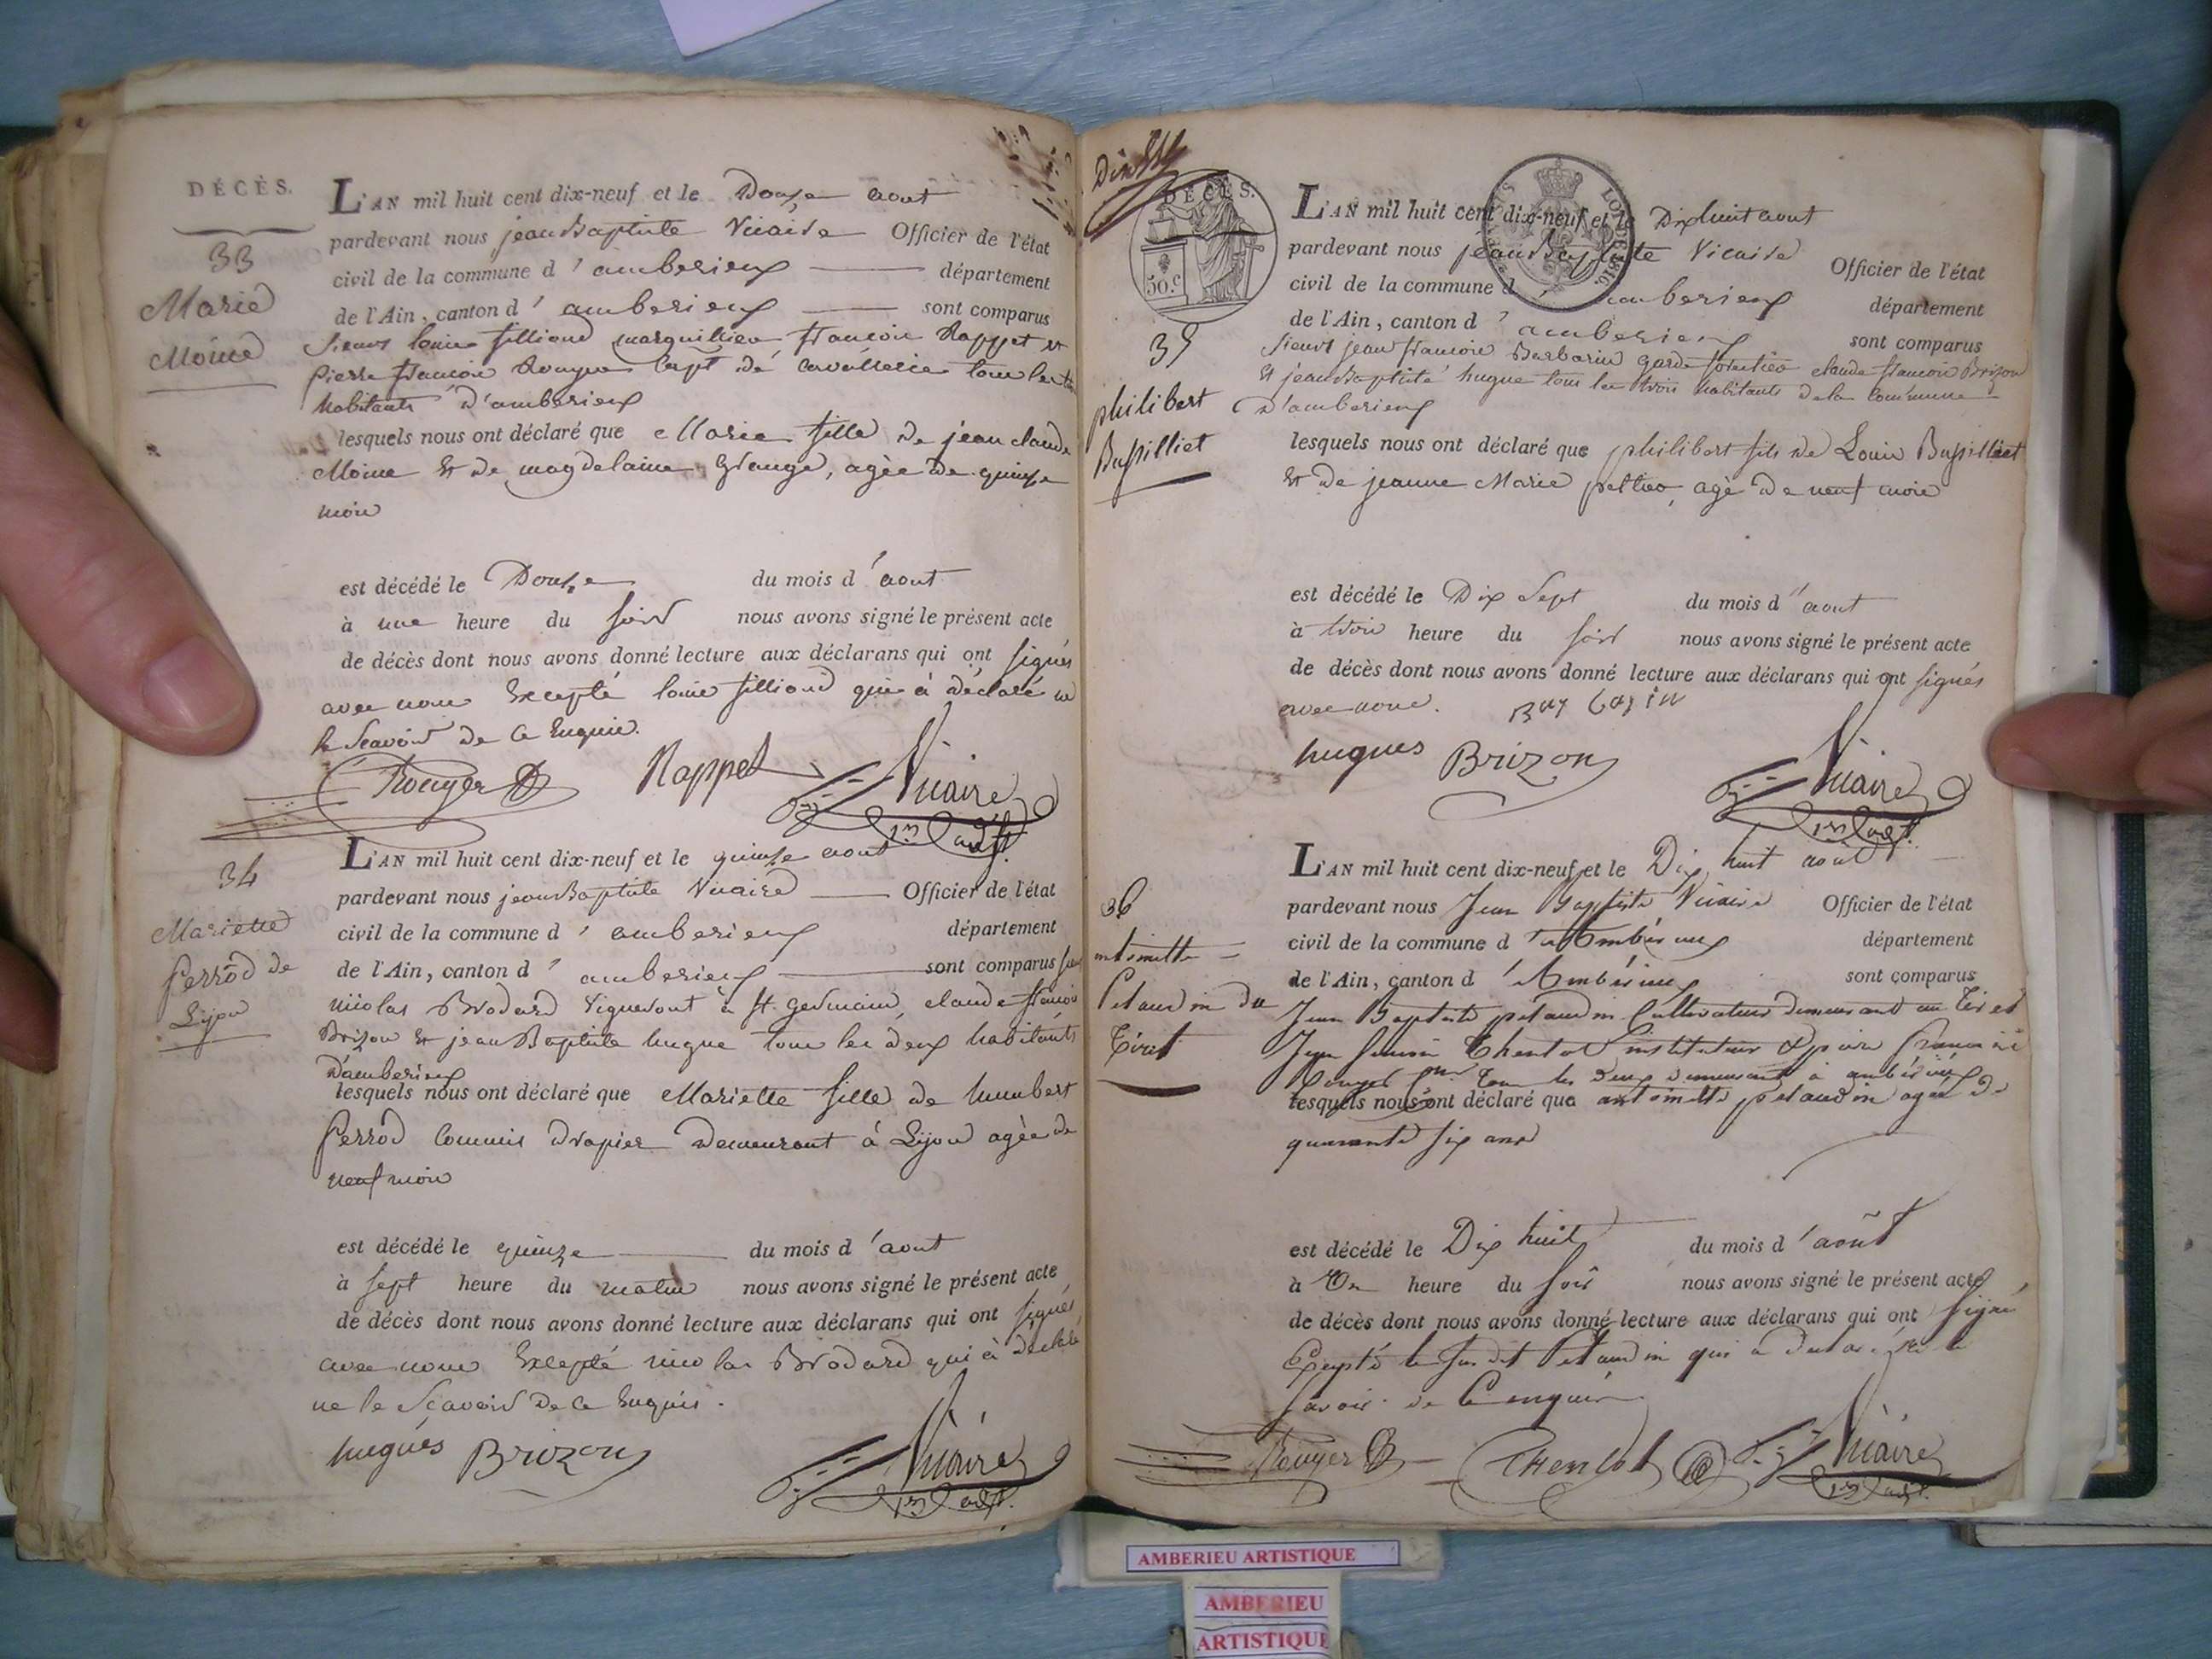 DÉCÈS.
33
Marie
Moine
L'AN mil huit cent dix-neuf et le Douze aout
pardevant nous jean Baptiste Vicaire Officier de l'état
civil de la commune d'amberieux département
de l'Ain, canton d'amberieux sont comparus
Sieurs louis silliand marguillier francois Rappet et
pierre francois Rouyer Capt de cavallerie tous les
habitants d'amberieux
lesquels nous ont déclaré que Marie fille de jean claude
Moine et de magdelaine Grange, agée de quinze
mois
est décédé le Douze du mois d'aout
à une heure du soir nous avons signé le présent acte
de décès dont nous avons donné lecture aux déclarans qui ont signés
avec nous Excepté louis silliand qui à déclaré ne
le Scavoir de ce Enquis.
Rouyer Rappet Vicaire
1er adjt.
34
Mariette
perrod de
Lijon
L'AN mil huit cent dix-neuf et le quinze aout
pardevant nous jean Baptiste Vicaire Officier de l'état
civil de la commune d'amberieux département
de l'Ain, canton d'amberieux sont comparus
nicolas Brodard Vigneront à St. germain, claude francois
Brizon et jean Baptiste hugue tous les deux habitants
d'amberieux
lesquels nous ont déclaré que Mariette fille de humbert
perrod Commis drapier Demeurant á Lijon agée de
neuf mois
est décédé le quinze du mois d'aout
à sept heure du matin nous avons signé le présent acte
de décès dont nous avons donné lecture aux déclarans qui ont signés
avec nous Excepté nicolas Brodard qui à déclaré
ne le Scavoir de ce Enquis.
hugues Brizon Vicaire
1er adjt.
DÉCÈS.
50.c
35
philibert
Bussilliet
L'AN mil huit cent dix-neuf et le Dixhuit aout
pardevant nous jean Baptiste Vicaire Officier de l'état
civil de la commune d'amberieux département
de l'Ain, canton d'amberieux sont comparus
Sieurs jean francois Barbarin garde forestier claude francois Brizon
et jean Baptiste hugue tous les trois habitants dela commune
D'amberieux
lesquels nous ont déclaré que philibert fils de Louis Bussilliet
et de jeanne Marie agé de neuf mois
est décédé le Dix Sept du mois d'aout
à trois heure du soir nous avons signé le présent acte
de décès dont nous avons donné lecture aux déclarans qui ont signés
avec nous. Barbarin
hugues Brizon Vicaire
1er adjt.
36
antoinette
Petaudin du
Tiret
L'AN mil huit cent dix-neuf et le Dix huit août
pardevant nous Jean Baptiste Vicaire Officier de l'état
civil de la commune d'Ambérieux département
de l'Ain, canton d'Ambérieux sont comparus
Jean Baptiste petaudin Cultivateur demeurant au Tiret
Jean instituteur & pierre francois
Rouyer tous les deux demeurant à ambérieux
lesquels nous ont déclaré que antoinette petaudin agée de
quarante six ans
est décédé le Dix huit du mois d'août
à Un heure du soir nous avons signé le présent acte
de décès dont nous avons donné lecture aux déclarans qui ont signé
Excepté le susdit Petaudin qui a Déclaré ne le
savoir de ce enquis
Rouyer Vicaire
1er adjt.
AMBERIEU ARTISTIQUE
AMBERIEU
ARTISTIQUE